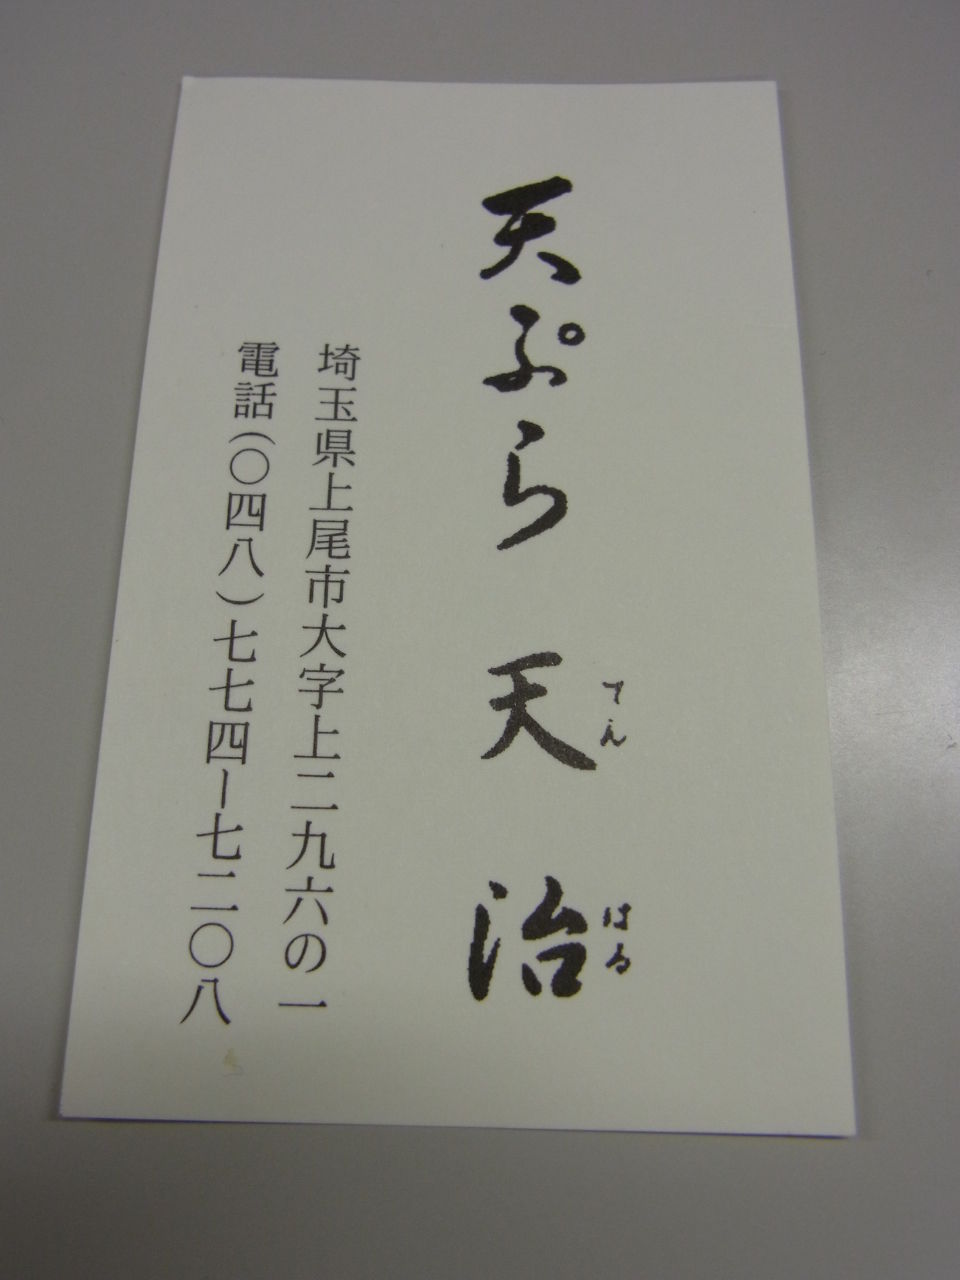 天ぷら 天治
てん はる
埼玉県上尾市大字上二九六の一
電話(〇四八)七七四ー七二〇八